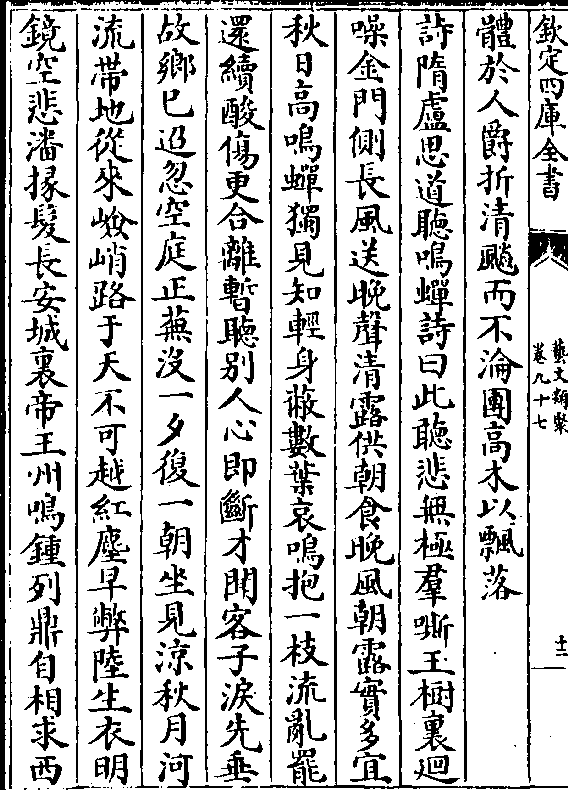 欽定四庫全書
藝文類聚
卷九十七
十二
體於人爵折清飈而不淪團高木以飄落
詩隋盧思道聽鳴蟬詩曰此聽悲無極羣嘶玉樹裏廻
噪金門側長風送晚聲清露供朝食晚風朝露實多宜
秋日高鳴蟬獨見知輕身蔽數葉哀鳴抱一枝流亂罷
還續酸傷更合離暫聽别人心即斷才聞客子淚先垂
故鄉已迢忽空庭正蕪没一夕復一朝坐見涼秋月河
流帶地從來崄峭路干天不可越紅塵早弊陸生衣明
鏡空悲潘掾髮長安城裏帝王州鳴鍾列鼎自相求西